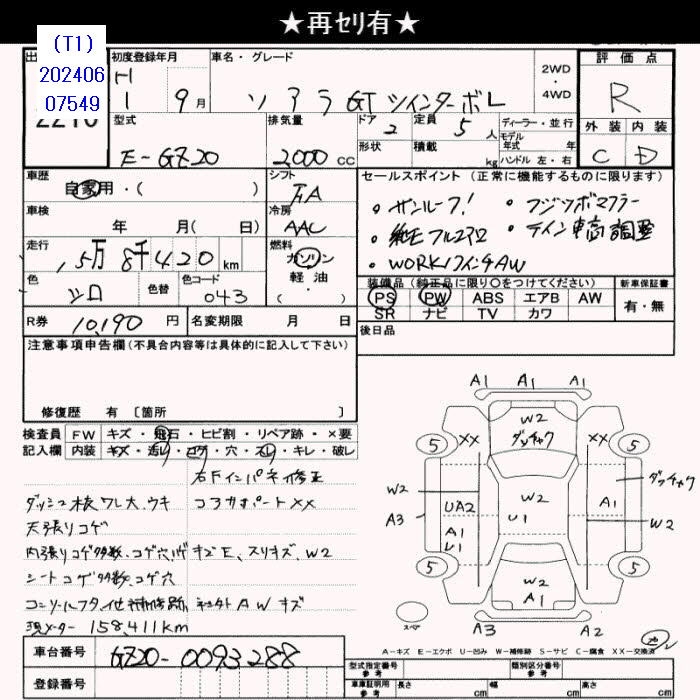 ★再ｾﾘ有★
(T1)
202406
07549
初度登録年月
H
1 9月
車名・グレード
ソアラ GTツインターボL
2WD
・
4WD
評価点
R
外装 内装
C D
型式
E-GZ20
排気量
2000 CC
ドア
2
定員
5人
ディーラー・並行
モデル
年式 年
形状
積載
kg
ハンドル 左・右
車歴
自家用・(  )
シフト
FA
セールスポイント (正常に機能するものに限ります)
・サンルーフ! ・フジツボマフラー
・純正フルエアロ ・テイン車高調整
・WORK17インチAW
車検
年 月( 日)
冷房
AAC
走行
15万8千420km
燃料
ガソリン
軽油
( ・ )
色
シロ
色替
色コード
043
装備品 (純正品に限り○をつけてください)
PS PW ABS エアB AW
SR ナビ TV カワ
新車保証書
有・無
R券 10,190円
名変期限 月 日
後日品
注意事項申告欄(不具合内容等は具体的に記入して下さい)
修復歴 有 〔箇所 〕
検査員 FW キズ・飛石・ヒビ割・リペア跡・×要
記入欄 内装 キズ・汚レ・コゲ・穴・スレ・キレ・破レ
右Fインパネ修正
ダッシュ板ワレ大、ウキ コアサポートXX
天張りコゲ
内張りコゲ多数、コゲ穴、ハゲ キズE、スリキズ、W2
シートコゲ多数、コゲ穴
現メーター158,411km
車台番号 GZ20-0093288
登録番号
A1 A1 A1
W2
ダッチャク
XX XX
5 5
ダッチャク
W2
A3
UA2
A1
U1
W2
U1
A1
W2
5 5
W2
A1
スペア
A3 A2
A-キズ E-エクボ U-凹み W-補修跡 S-サビ C-腐食 XX-交換済
型式指定番号
参考
類別区分番号
参考
車庫証明用
参考
長さ cm
幅 cm
高さ cm